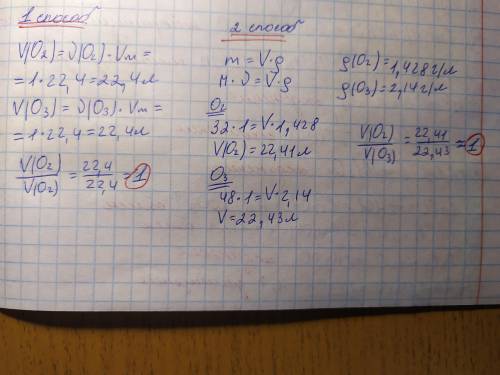 1 способ
V(O₂)=ϑ(O₂)·Vm=
=1·22,4=22,4л
V(O₃)=ϑ(O₃)·Vm=
=1·22,4=22,4л
V(O₂)/V(O₂)=22,4/22,4=1
2 способ
m=V·g
M·ϑ=V·g
O₂
32·1=V·1,428
V(O₂)=22,41л
O₃
48·1=V·2,14
V=22,43л
g(O₂)=1,428г/л
g(O₃)=2,14г/л
V(O₂)/V(O₃)=22,41/22,43=1